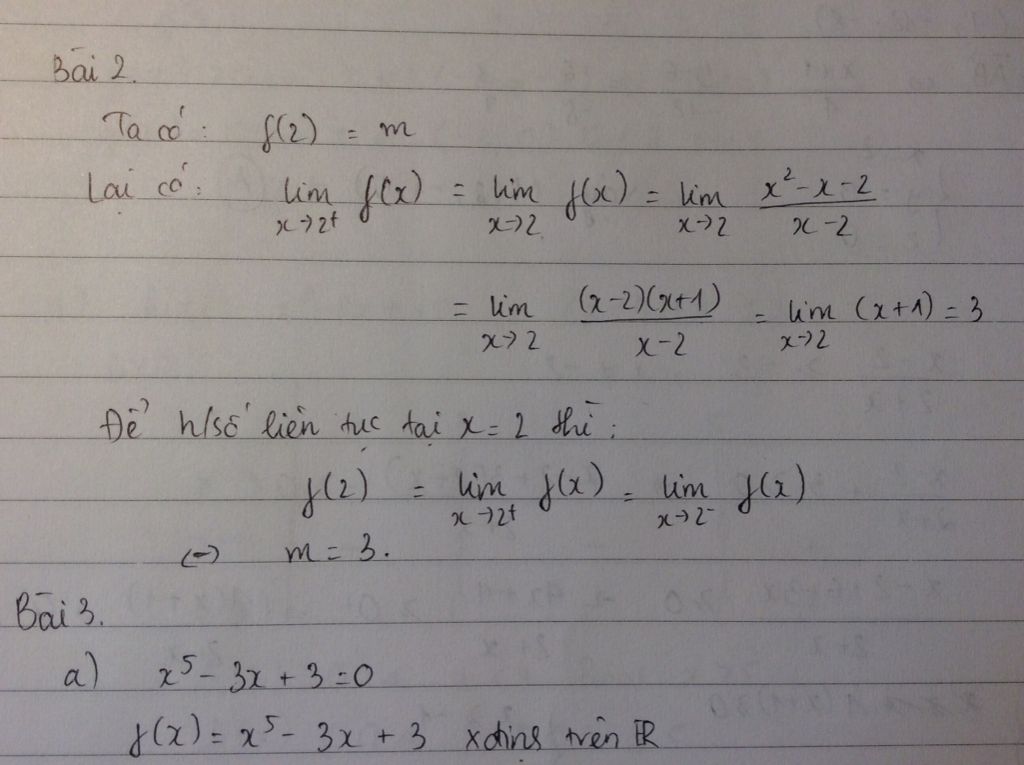 Bài 2.
Ta có: f(2) = m
Lại có: lim x→2+ f(x) = lim x→2 f(x) = lim x→2 (x² - x - 2)/(x - 2)
= lim x→2 (x-2)(x+1)/(x-2) = lim x→2 (x+1) = 3
Để h/số liên tục tại x = 2 thì:
f(2) = lim x→2+ f(x) = lim x→2- f(x)
(=) m = 3.
Bài 3.
a) x⁵ - 3x + 3 = 0
f(x) = x⁵ - 3x + 3 xđịnh trên ℝ